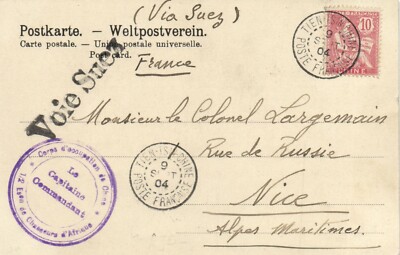 (Via Suez)
Postkarte. — Weltpostverein.
Carte postale. — Union postale universelle.
Post card.
France
Voie Suez
TIEN-TSIN CHINE
9
SEPT
04
POSTE FRANÇSE
10
CHINE
Monsieur le Colonel Largemain
Rue de Russie
Nice
Alpes Maritimes.
TIEN-TSIN CHINE
9
SEPT
04
POSTE FRANÇSE
Corps d'occupation de Chine
Le
Capitaine
Commandant
1/2 Escon de Chasseurs d'Afrique